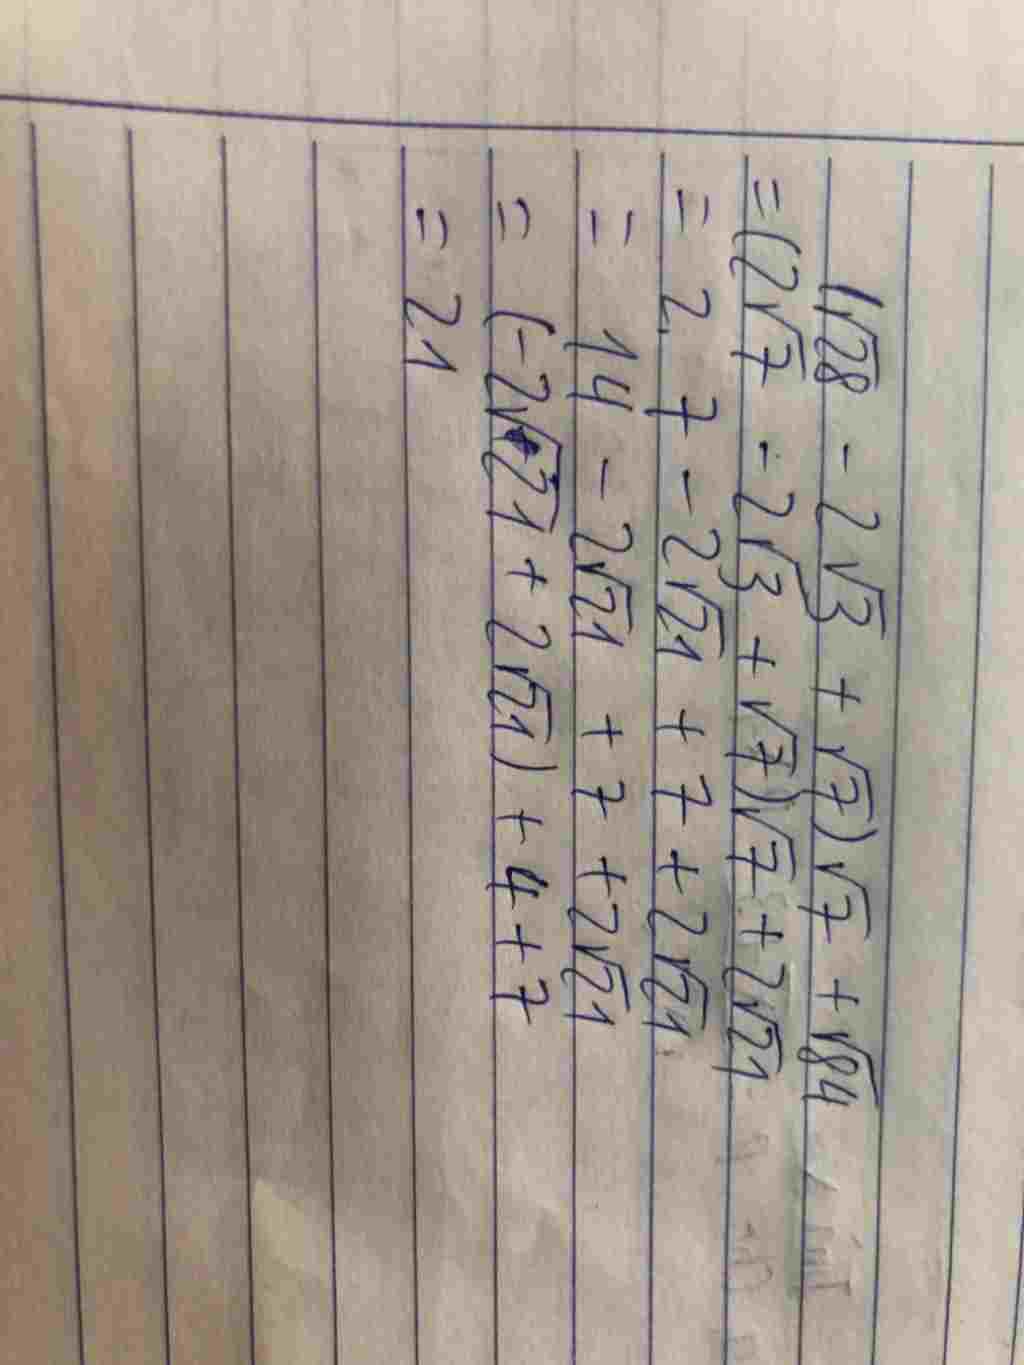 (√28 - 2√3 + √7)√7 + √84
= (2√7 - 2√3 + √7)√7 + 2√21
= 2.7 - 2√21 + 7 + 2√21
= 14 - 2√21 + 7 + 2√21
= (-2√21 + 2√21) + 4 + 7
= 21